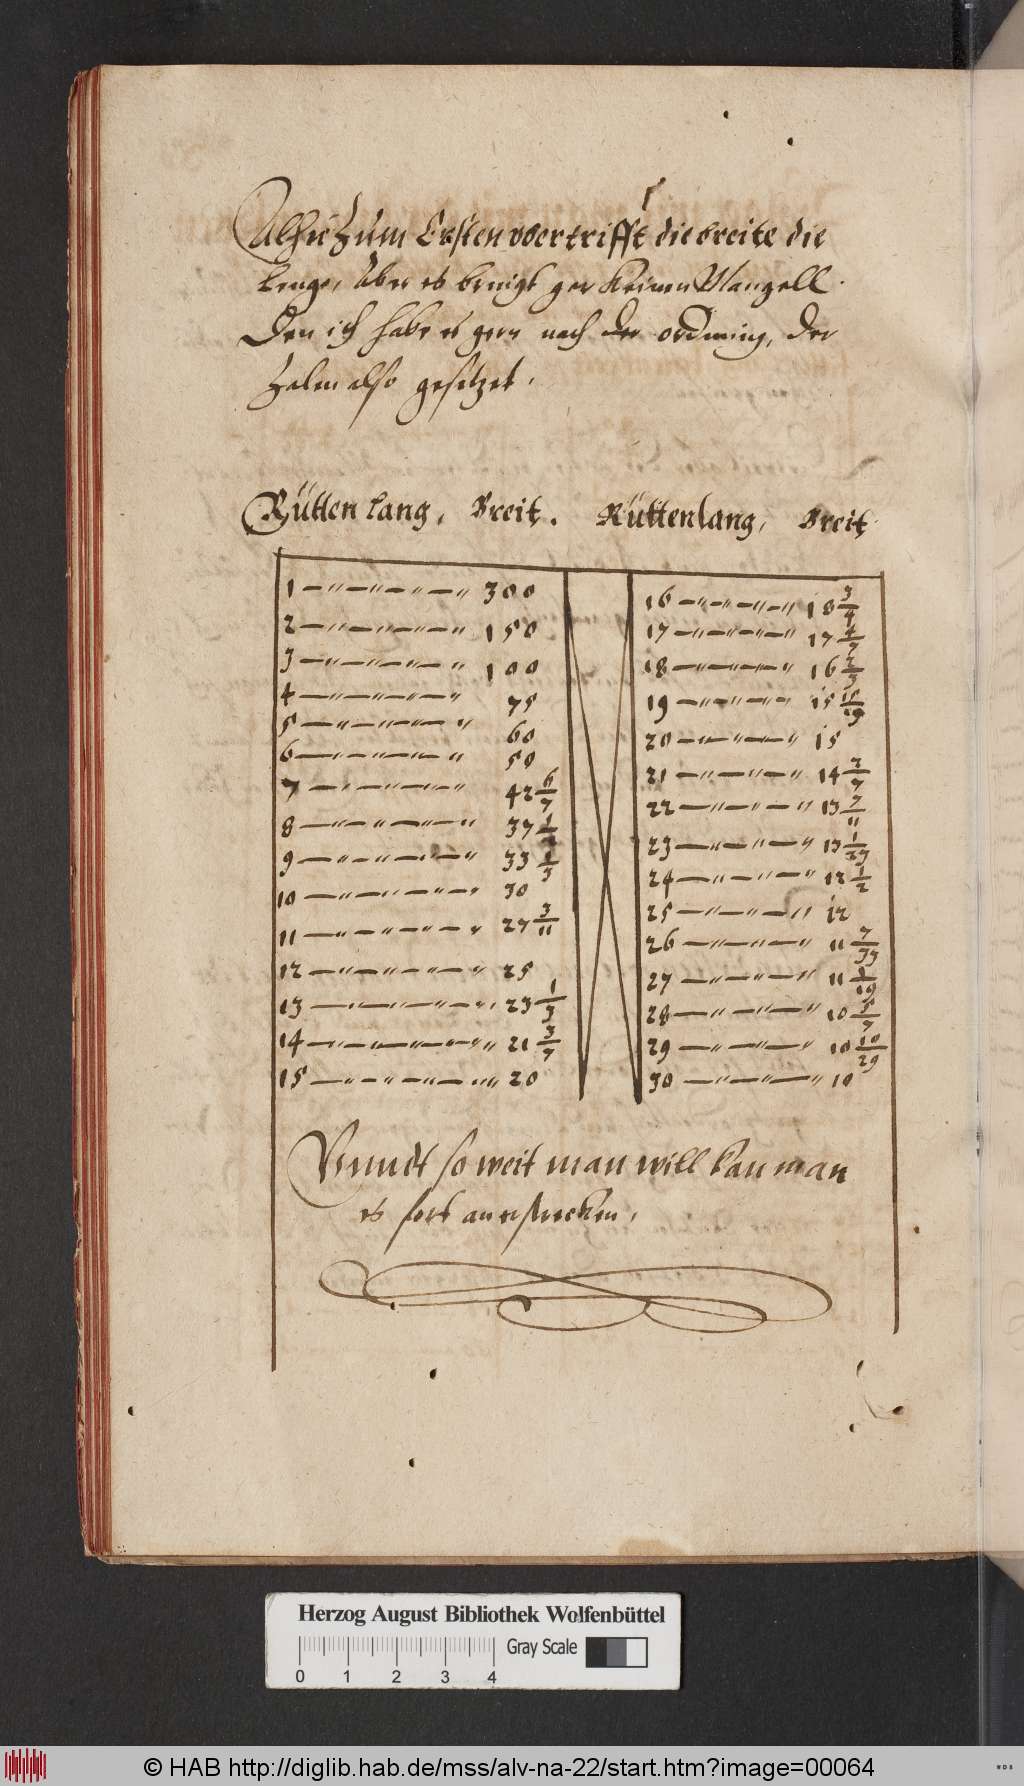 Alhie Zum Ersten voertrifft die breite die
lenge, Aber es brnigt gar keinen Mangell.
Den ich habe es gern nach der ordnung, der
Zalen also gesetzet.
Rütten lang, Breit. Rütten lang, Breit
1 300 16 18 3/4
2 150 17 17 4/7
3 100 18 16 2/3
4 75 19 15 15/19
5 60 20 15
6 50 21 14 2/7
7 42 6/7 22 13 7/11
8 37 1/2 23 13 1/23
9 33 1/3 24 12 1/2
10 30 25 12
11 27 3/11 26 11 7/33
12 25 27 11 1/19
13 23 1/3 28 10 5/7
14 21 3/7 29 10 10/29
15 20 30 10
Vnndt so weit man will kan man
es fort an erstrecken.
Herzog August Bibliothek Wolfenbüttel
Gray Scale
0 1 2 3 4
© HAB http://diglib.hab.de/mss/alv-na-22/start.htm?image=00064